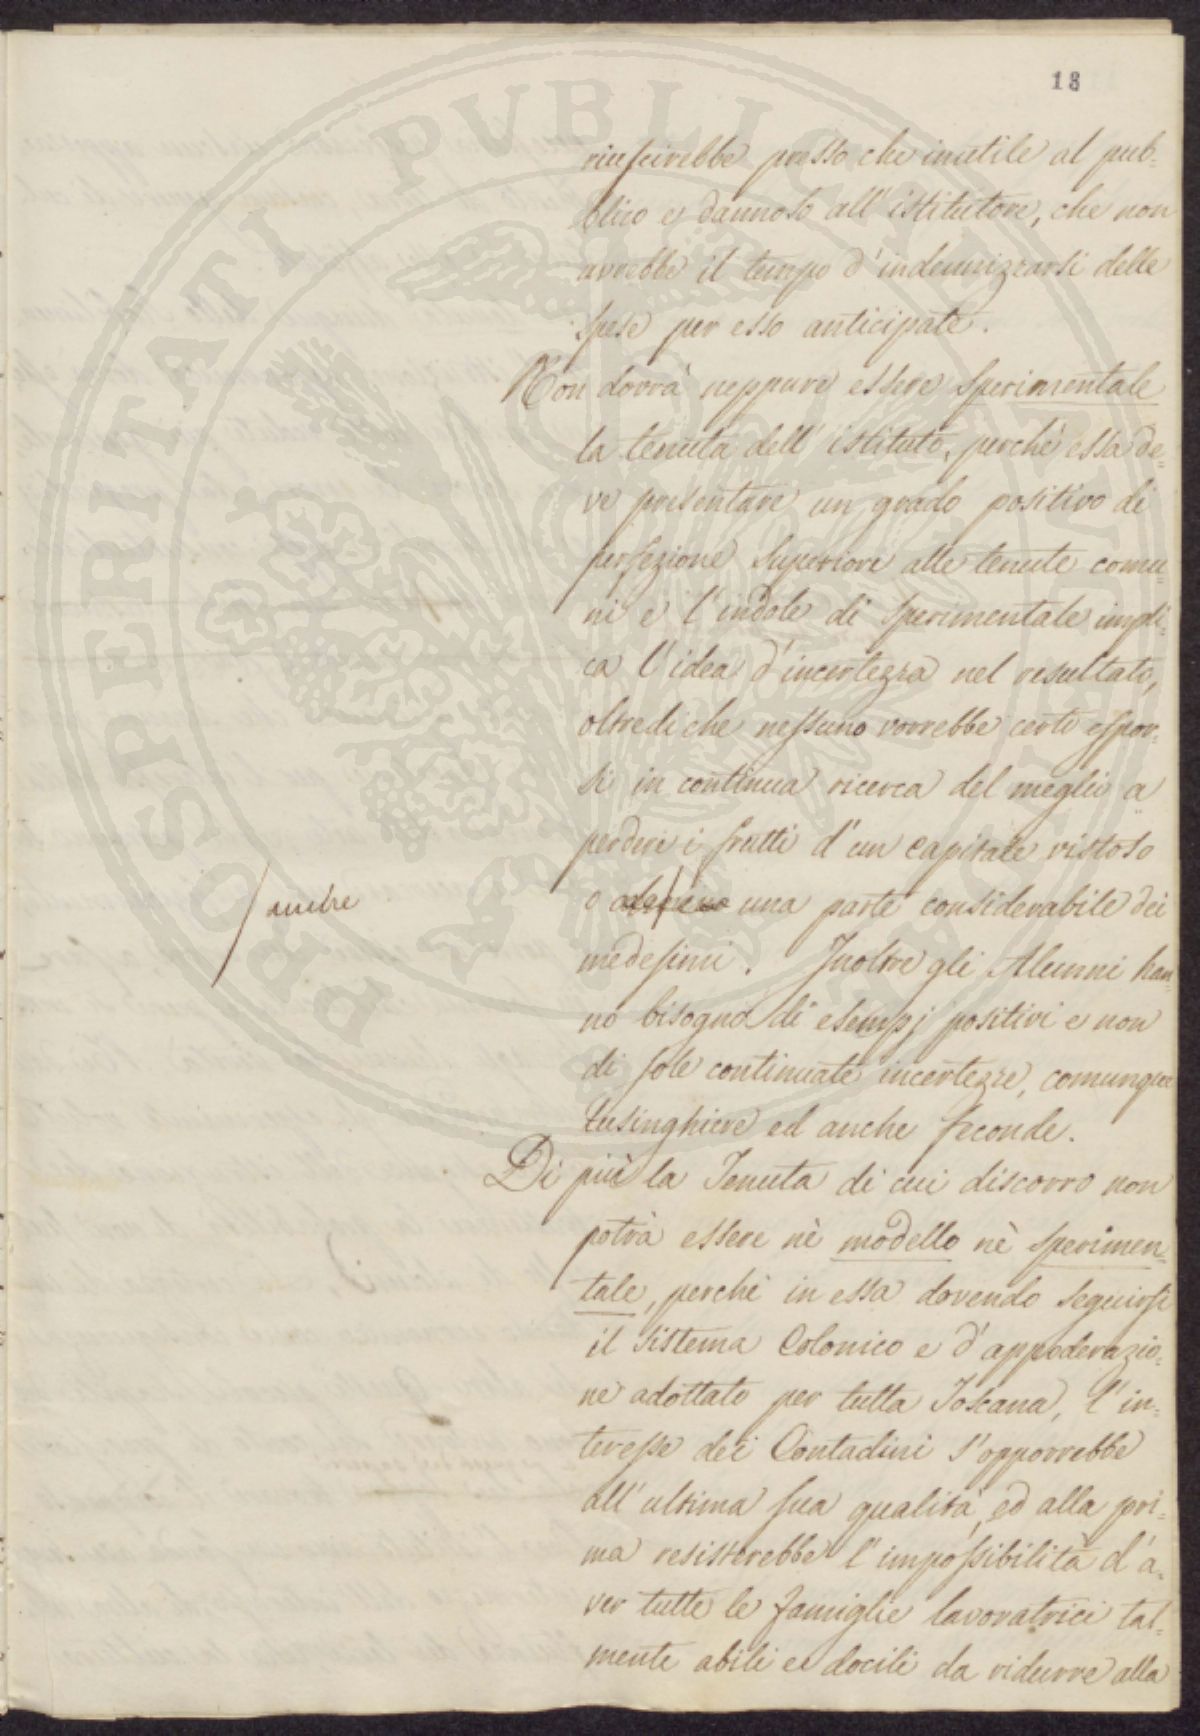 18
riuscirebbe presso che inutile al pub=
blico e dannoso all'istitutore, che non
avrebbe il tempo d'indennizzarsi delle
spese per esso anticipate.
Non dovrà neppure essere sperimentale
la tenuta dell'istituto, perchè essa de=
ve presentare un grado positivo di
perfezione superiore alle tenute comu=
ni e l'indole di sperimentale impli=
ca l'idea d'incertezza nel resultato,
oltredichè nessuno vorrebbe certo espor=
si in continua ricerca del meglio a
perdere i frutti d'un capitale vistoso
o una parte considerabile dei
anche
medesimi. Inoltre gli Alunni han=
no bisogno di esempj positivi e non
di sole continuate incertezze, comunque
lusinghiere ed anche feconde.
Di più la Tenuta di cui discorro non
potrà essere nè modello nè sperimen=
tale, perchè in essa dovendo seguirsi
il sistema Colonico e d'appoderazio=
ne adottato per tutta Toscana, l'in=
teresse dei Contadini s'opporrebbe
all'ultima sua qualità, ed alla pri=
ma resisterebbe l'impossibilità d'a=
ver tutte le famiglie lavoratrici tal=
mente abili e docili da ridurre alla
PROSPERITATI PVBLICAE